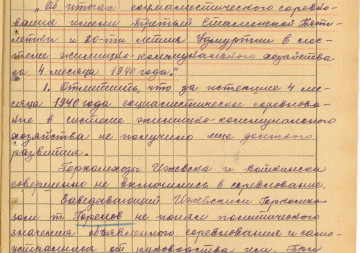 „Об итогах социалистического соревно-
вания имени Третьей Сталинской Пяти-
летки и 20-ти летия Удмуртии в сис-
теме жилищно-коммунального хозяйства
за 4 месяца 1940 года."
1. Отметить, что за истекшие 4 ме-
сяца 1940 года социалистическое соревнова-
ние в системе жилищно-коммунального
хозяйства не получило еще должного
развития.
Горкомхозы Ижевска и Воткинска
совершенно не включились в соревнование.
Заведывающий Ижевским Горкомхо-
зом т. не понял политического
значения объявленного соревнования и само-
устранился от руководства им.